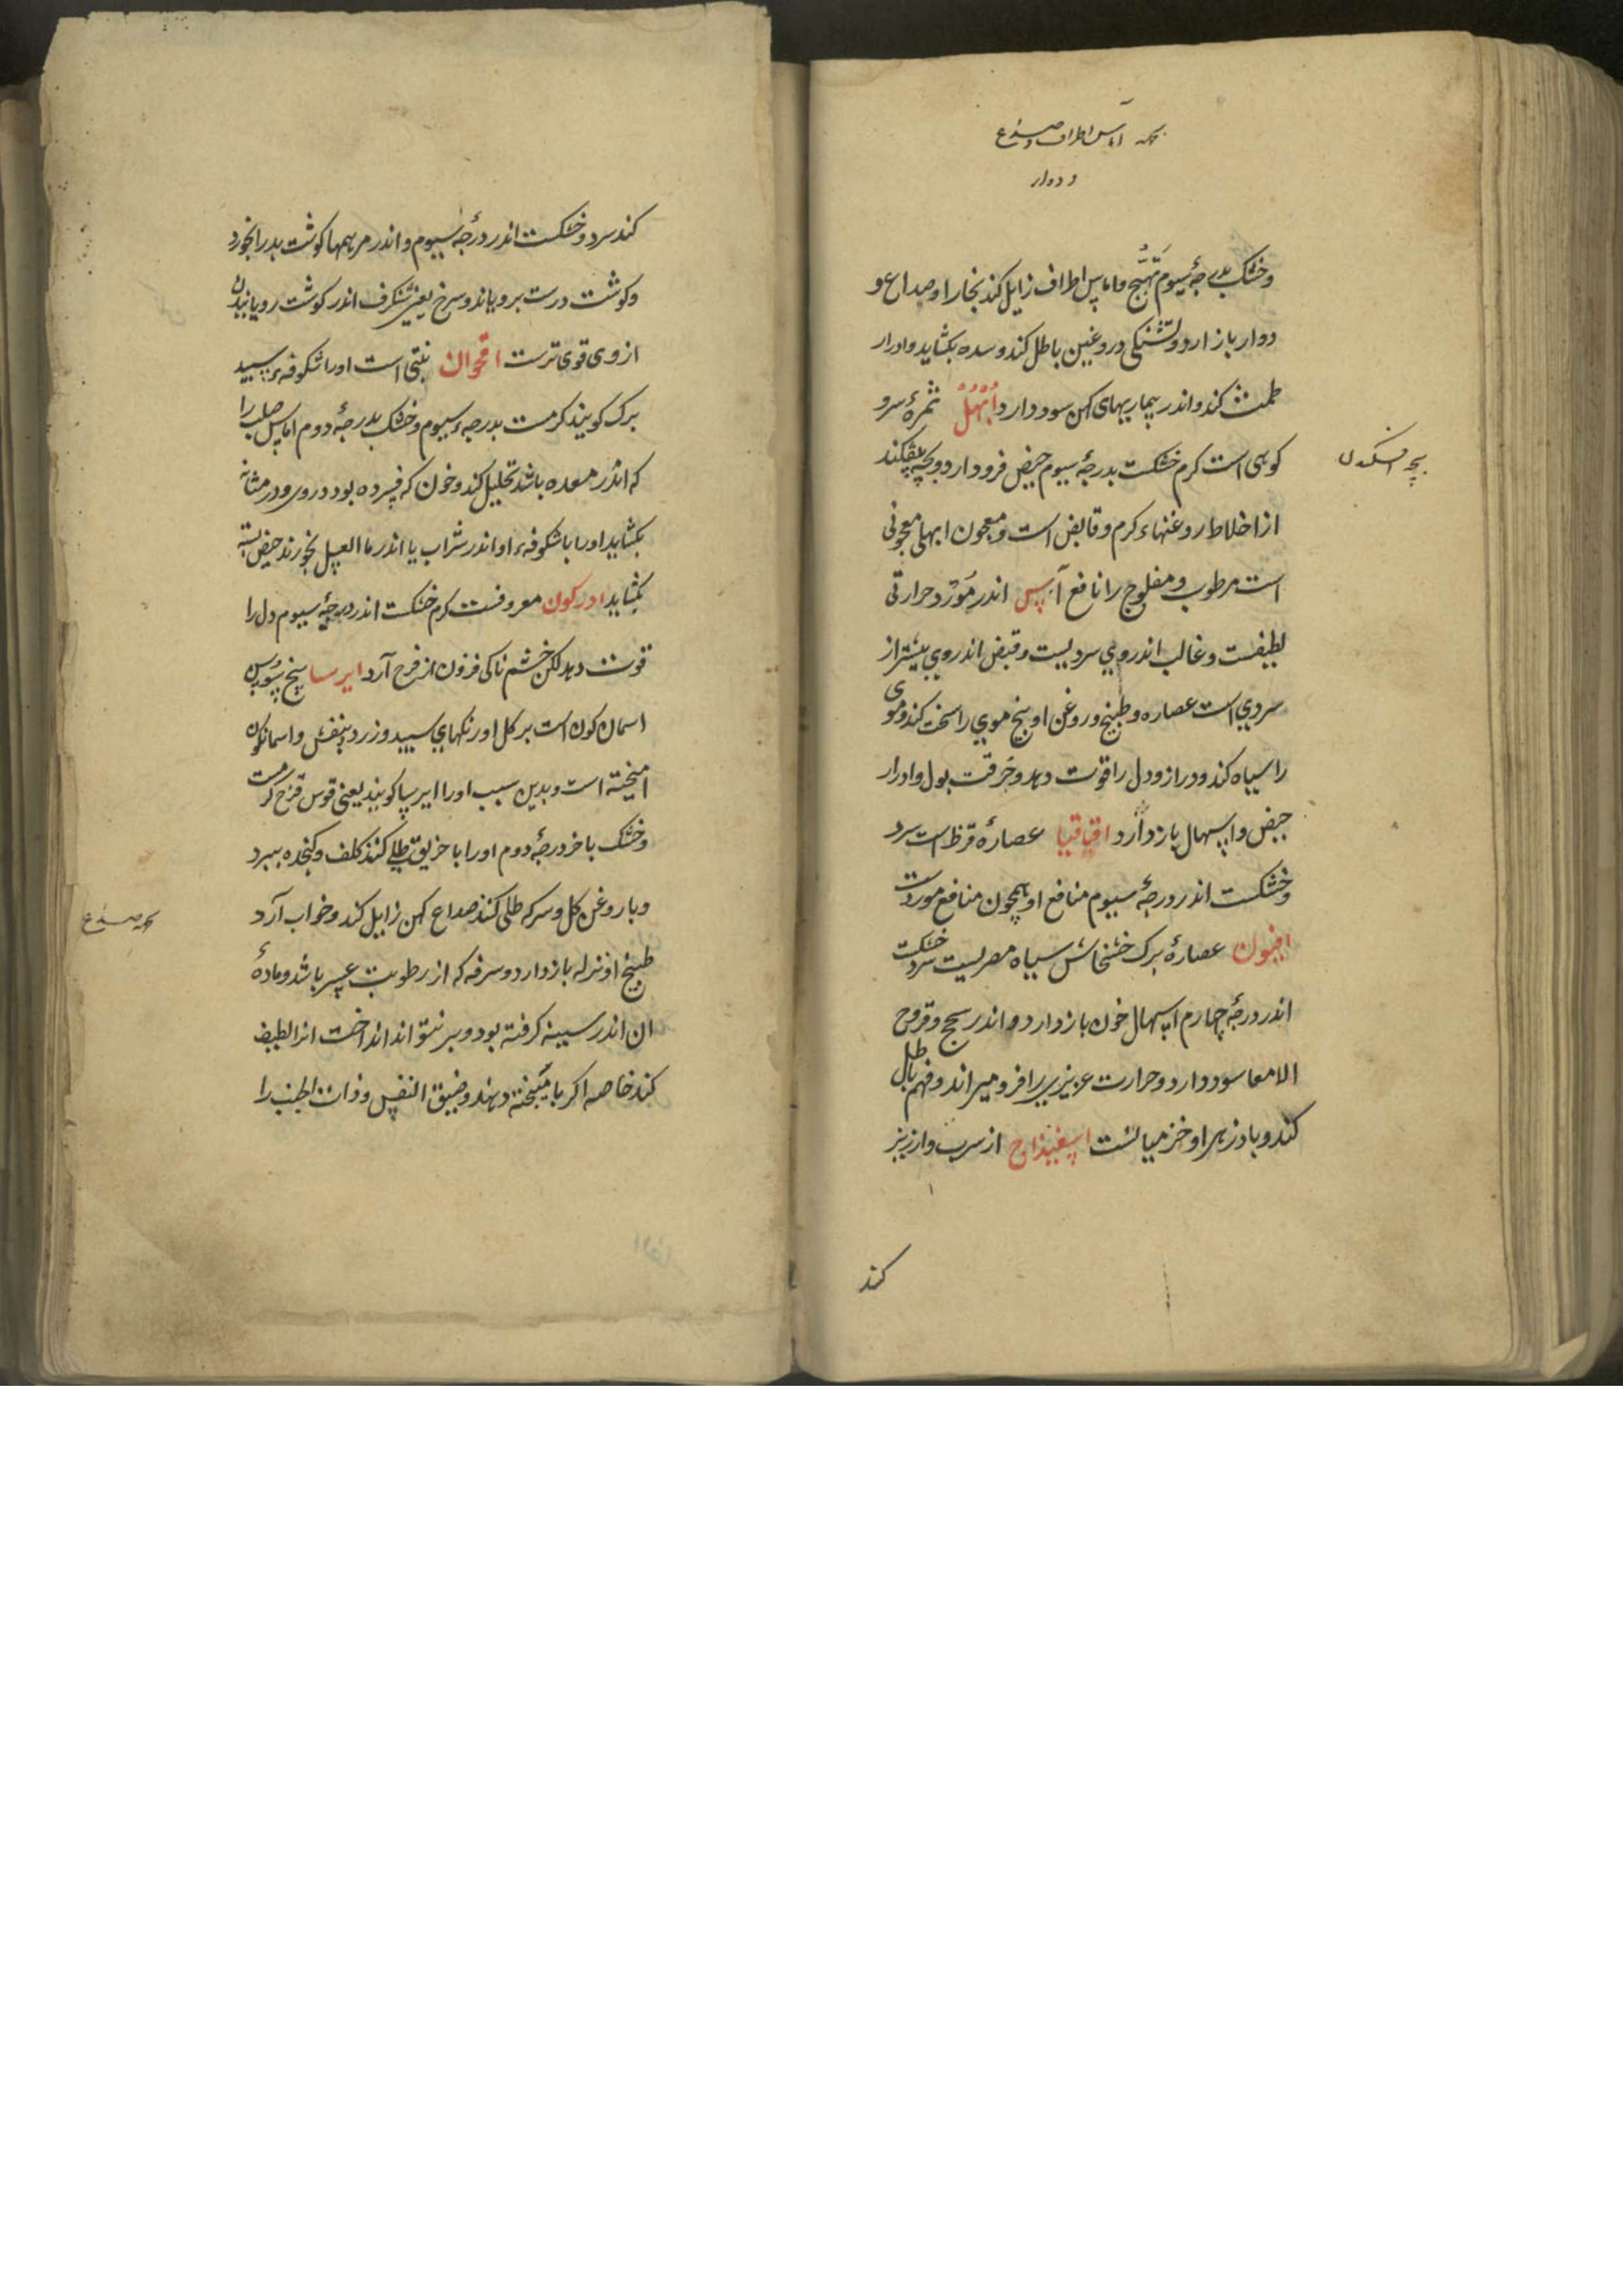 بجهه اماس اطراف و صداع
و دوار
وخشک بدرجۀ سیوم تهیج واماس اطراف زایل کند بخار او صداع و
دوار باز ارد و تشنکی دروغین باطل کند و سده بکشاید وادرار
طمث کند واندر بیماریهای کهن سود دارد ابهل ثمرۀ سرو
کوهی است کرم خشکست بدرجۀ سیوم حیض فرود ارد و بچه بیفکند
بچه افکندن
از اخلاط روغنهاء کرم و قابض است و معجون ابهلی معجونی
است مرطوب و مفلوج را نافع آس اندر مورد حرارتی
لطیفست و غالب اندر وی سردیست و قبض اندر وی بیشتر از
سردی است عصاره و طبیخ و روغن او بیخ موی را سخت کند و موی
را سیاه کند و دراز و دل را قوت دهد و حرقت بول وادرار
حیض واسهال باز دارد اقاقیا عصارۀ قرظ است سرد
وخشکست اندر درجۀ سیوم منافع او همچون منافع موردست
افیون عصارۀ برک خشخاش سیاه مصریست سرد خشکست
اندر درجۀ چهارم اسهال خون باز دارد و اندر سحج و قروح
الامعا سود دارد و حرارت عزیزی را فرو میراند و فهم باطل
کند و بادزهر او خزمیانست اسفیذاج از سرب وارزیز
کند
کند سرد و خشکست اندر درجۀ سیوم و اندر مرهمها کوشت بد را بخورد
وکوشت درست برویاند و سرخ یعنی شنکرف اندر کوشت رویانیدن
از وی قوی ترست اقحوان نبتی است اورا شکوفهء سپید
برک کویند کرمست بدرجهء سیوم و خشک بدرجۀ دوم اماس صلب را
که اندر معده باشد تحلیل کند و خون که فسرده بود در وی و در مثانه
بکشاید اورا با شکوفهء او اندر شراب یا اندر ما العسل بخورند حیض بسته
بکشاید ادرکون معروفست کرم خشکست اندر درجۀ سیوم دل را
قوت دهد لکن خشم ناکی فزون از فرح آرد ایرسا بیخ سوسن
اسمان کون است بر کل او رنکهای سپید و زرد و بنفش واسمانکون
امیخته است و بدین سبب اورا ایرسا کویند یعنی قوس قزح کرمست
وخشک باخر درجۀ دوم اورا با خربق طلی کنند کلف و کنجده ببرد
وبا روغن کل و سرکه طلی کنند صداع کهن زایل کند و خواب آرد
بجهه صداع
طبیخ او نزله باز دارد و سرفه که از رطوبت عسر باشد و مادۀ
ان اندر سینه کرفته بود و بر نتواند انداخت انرا لطیف
کند خاصه اکر با میبخته دهند و ضیق النفس و ذات الجنب را